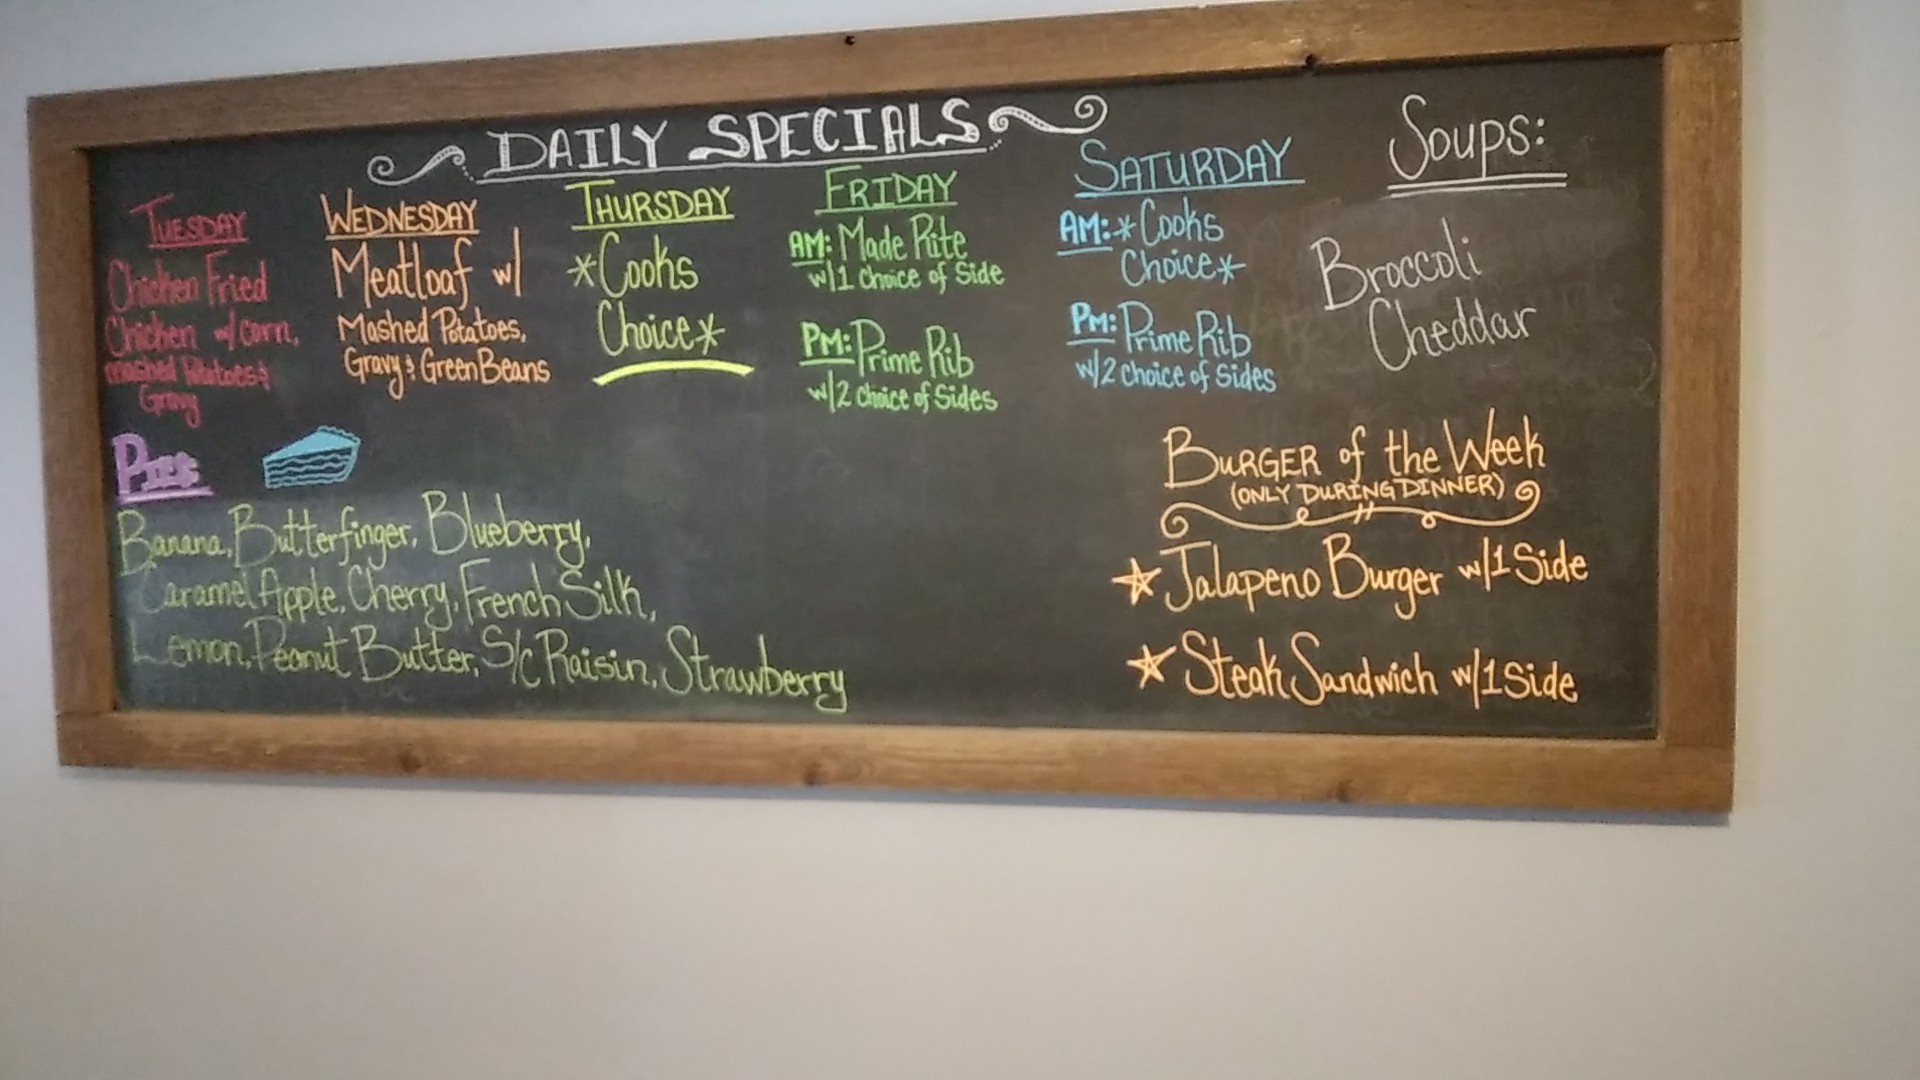 DAILY SPECIALS
TUESDAY
Chicken Fried
Chicken w/corn,
mashed Potatoes &
Gravy
WEDNESDAY
Meatloaf w/
Mashed Potatoes,
Gravy & Green Beans
THURSDAY
*Cooks
Choice*
FRIDAY
AM: Made Rite
w/1 choice of Side
PM: Prime Rib
w/2 choice of Sides
SATURDAY
AM: *Cooks
Choice*
PM: Prime Rib
w/2 choice of Sides
Soups:
Broccoli
Cheddar
PIES
Banana, Butterfinger, Blueberry,
Caramel Apple, Cherry, French Silk,
Lemon, Peanut Butter, S/c Raisin, Strawberry
BURGER of the Week
(ONLY DURING DINNER)
Jalapeno Burger w/1 Side
Steak Sandwich w/1 Side